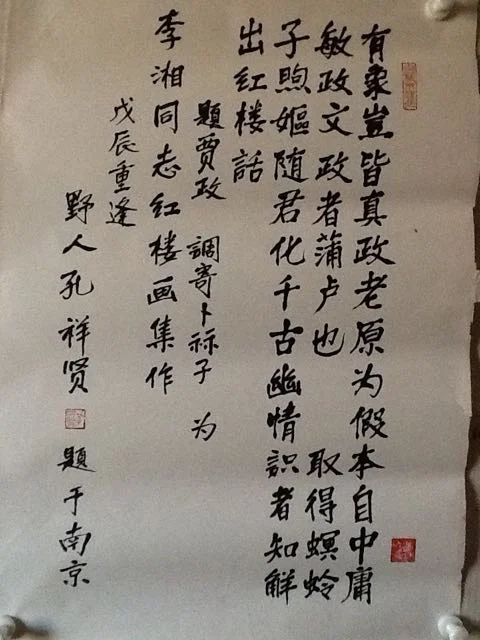 有象豈皆真政老原为假本自中庸
敏政文政者蒲卢也 取得螟蛉
子煦嫗随君化千古幽情識者知解
出红楼話
題贾政 調寄卜祘子 为
李湘同志红楼画集作
戊辰重逢
野人孔祥贤 題于南京